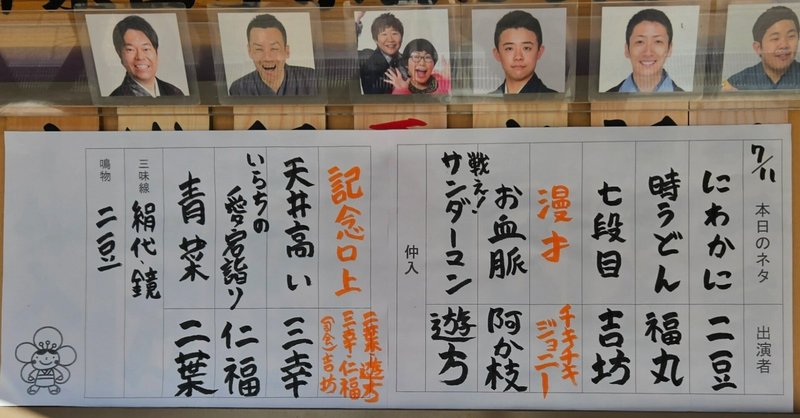 7/11 本日のネタ 出演者
にわかに 二豆
時うどん 福丸
七段目 吉坊
漫才 チキチキジョニー
お血脈 阿か枝
戦え!サンダーマン 遊方
仲入
記念口上 二葉・遊方 三幸・仁福 (司会)吉坊
天井高い 三幸
いらちの愛宕詣り 仁福
青菜 二葉
三味線 絹代・鏡
鳴物 二豆